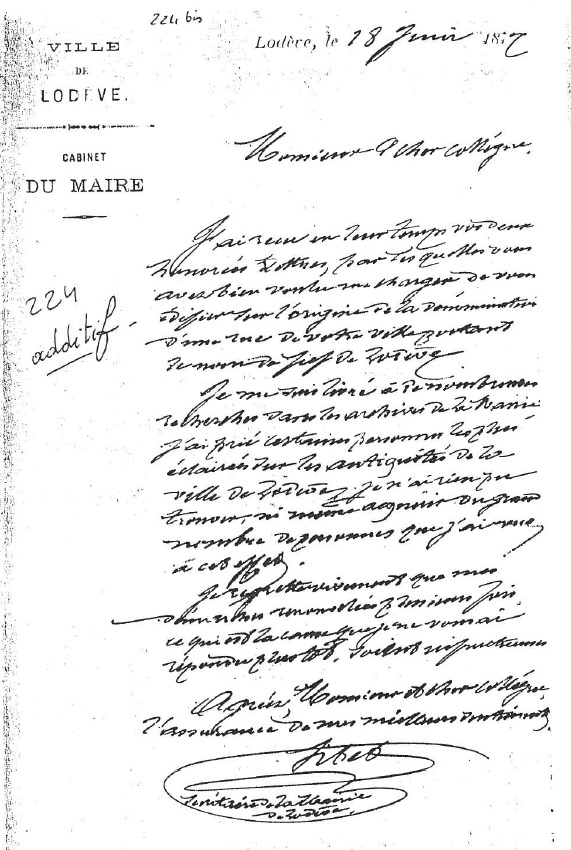 224 bis
VILLE
DE
LODÈVE.
CABINET
DU MAIRE
Lodève, le 18 Juin 187
Monsieur & cher collègue.
224
additif
J'ai reçu en leur temps vos deux
honorées lettres, par lesquelles vous
avez bien voulu me charger de vous
édifier sur l'origine de la dénomination
d'une rue de votre ville portant
le nom de fief de Lodève
Je me suis livré à de nombreuses
recherches dans les archives de la Mairie
j'ai prié certaines personnes les plus
éclairées sur les antiquités de la
ville de Lodève, je n'ai rien pu
trouver, ni même acquérir du grand
nombre de personnes que j'ai vues
à cet effet.
Je regrette vivement que mes
démarches renouvelées plusieurs fois
ce qui est la cause que je ne vous ai
répondu plus tôt,
Agréez, Monsieur et cher collègue
l'assurance de mes meilleurs sentiments
Secrétaire de la Mairie
de Lodève.